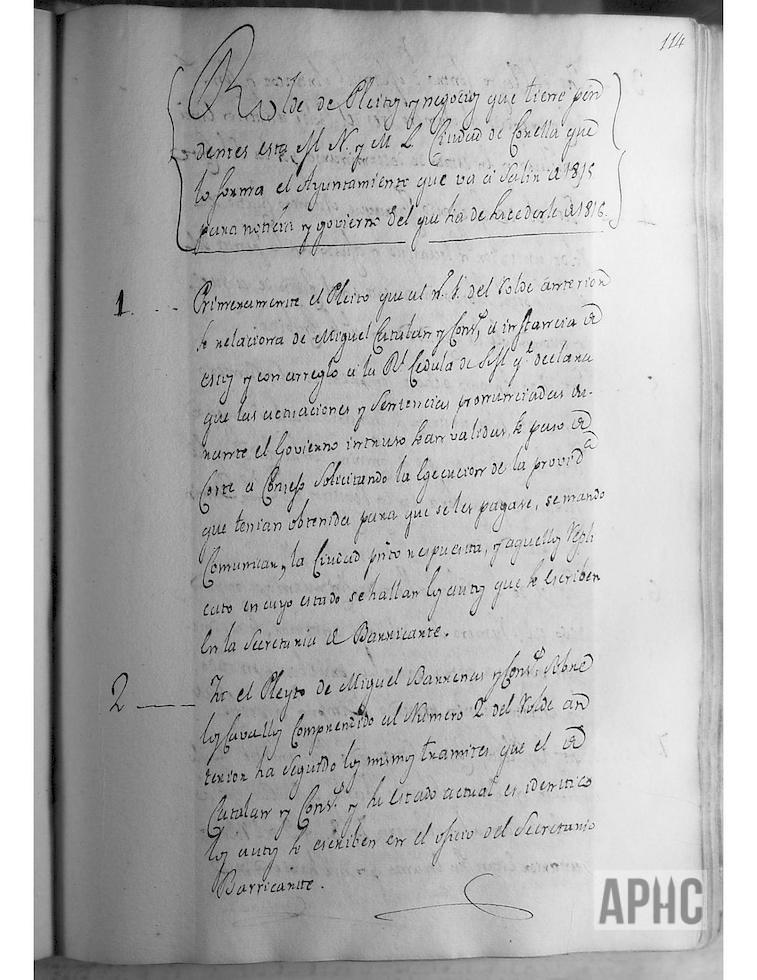 114
Rolde de Pleitos y negocios que tiene pen
dientes esta M N. y M L Ciudad de Corella que
lo forma el Ayuntamiento que va a Salir de 1815
para noticia y govierno del que ha de sucederle de 1816.
1. Primeramente el Pleito que al n.º 1.º del Rolde anterior
se relaciona de Miguel Catalan y Cons.tes a instancia de
estos y con arreglo a la R.l Cedula de S.M q.e declara
que las actuaciones y Sentencias pronunciadas du-
rante el Govierno intruso sean validas, se paso de
Corte a Consejo Solicitando la Egecucion de la provid.a
que tenian obtenida para que se les pagase, se mando
Comunicar, la Ciudad pnto respuesta, y aquellos Repli
cato en cuyo estado se hallan los autos que se escriben
en la Secretaria de Barricante.
2 It el Pleyto de Miguel Barreras y Cons.tes Sobre
los Cavallos Comprendido al Numero 2.º del Rolde an
terior ha seguido los mismos tramites que el de
Catalan y Cons.tes y su estado actual es identico
los autos se escriben en el oficio del Secretario
Barricante.
APHC